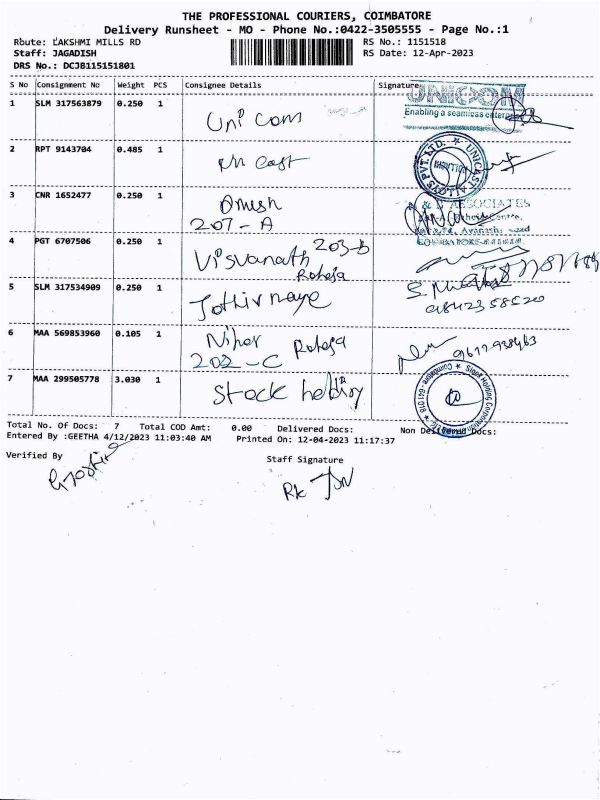 THE PROFESSIONAL COURIERS, COIMBATORE
Delivery Runsheet - MO - Phone No.:0422-3505555 - Page No.:1
Route: LAKSHMI MILLS RD RS No.: 1151518
Staff: JAGADISH RS Date: 12-Apr-2023
DRS No.: DCJB115151801
S No Consignment No Weight PCS Consignee Details Signature
1 SLM 317563879 0.250 1 Uni Com UNICOM
Enabling a seamless
2 RPT 9143704 0.485 1 Uni cast
3 CNR 1652477 0.250 1 Omesh
207-A ASSOCIATES
4 PGT 6707506 0.250 1 Visvanath 203-B
Raheja
5 SLM 317534909 0.250 1
6 MAA 569853960 0.105 1 Nihar Raheja
202-C
7 MAA 299505778 3.030 1 Stock holding
Total No. Of Docs: 7 Total COD Amt: 0.00 Delivered Docs: Non Delivered Docs:
Entered By :GEETHA 4/12/2023 11:03:40 AM Printed On: 12-04-2023 11:17:37
Verified By Staff Signature